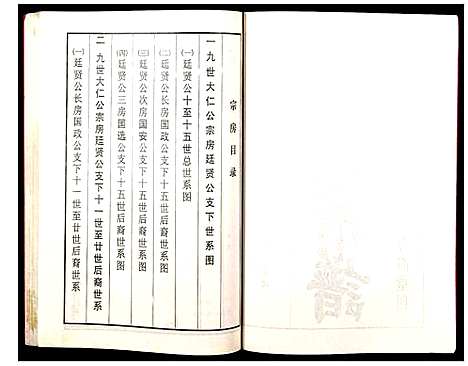 宗房目录
一 九世大仁公宗房廷贤公支下世系图
㈠廷贤公十至十五世总世系图
㈡廷贤公长房国政公支下十五世后裔世系图
㈢廷贤公次房国安公支下十五世后裔世系图
㈣廷贤公三房国选公支下十五世后裔世系图
二 九世大仁公宗房廷贤公支下十一世至廿世后裔世系图
㈠廷贤公长房国政公支下十一世至廿世后裔世系